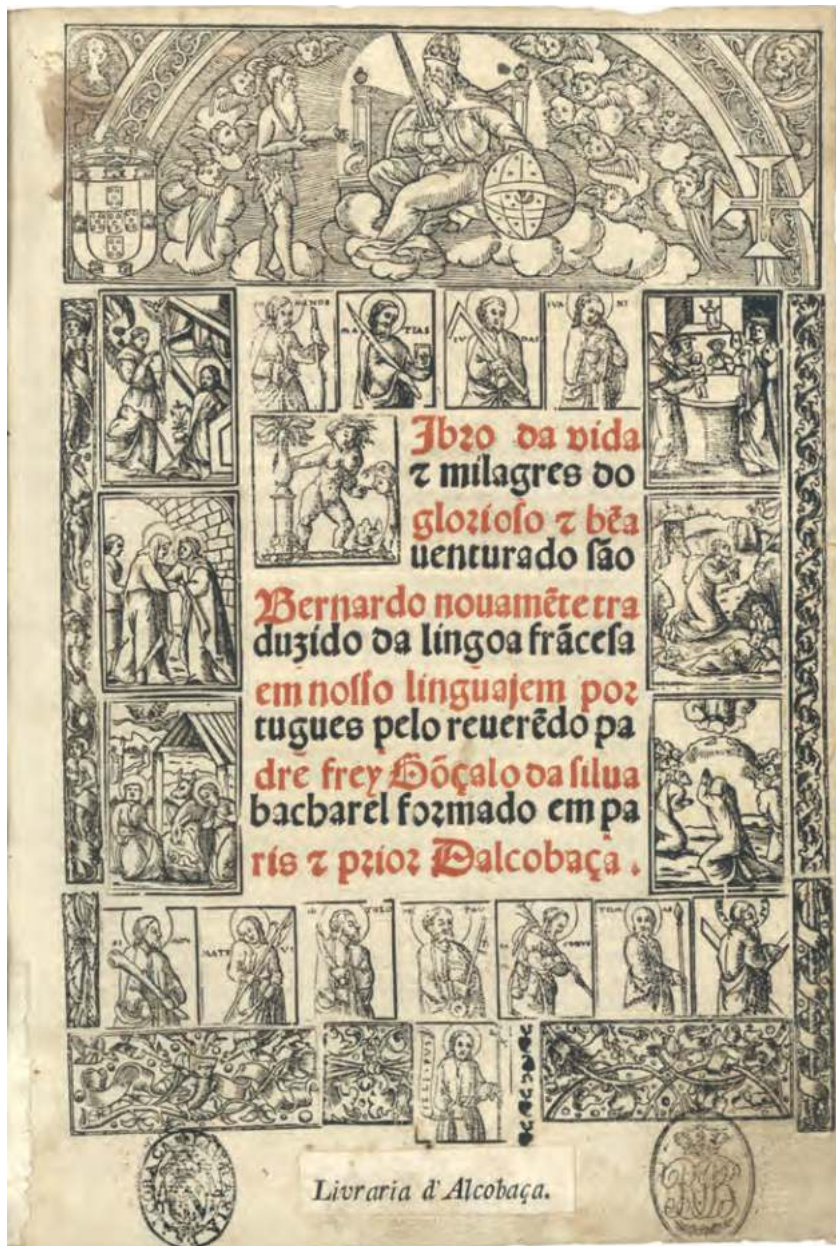 MA TIAS
IV DAS
IVA NI
Ibro da vida
⁊ milagres do
glorioſo ⁊ bẽa
uenturado ſão
Bernardo nouamẽte tra
duzido da lingoa frãceſa
em noſſo linguajem por
tugues pelo reuerẽdo pa
dre frey Gõçalo da ſilua
bacharel formado em pa
ris ⁊ prior Dalcobaça .
Livraria d'Alcobaça.